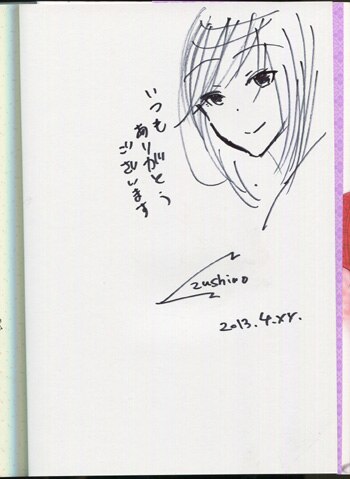 いつも
ありがとう
ございます
zushi00
2013.4.XX.